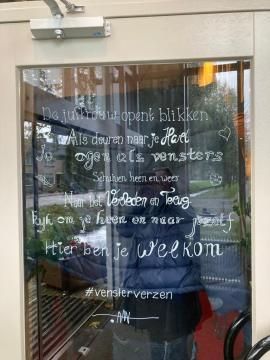 De juffrouw opent blikken
Als deuren naar je Hart
Je ogen als vensters
Schuiven heen en weer
Naar het Verleden en Terug
Kijk om je heen en naar jezelf
Hier ben je WELKOM
#vensterverzen